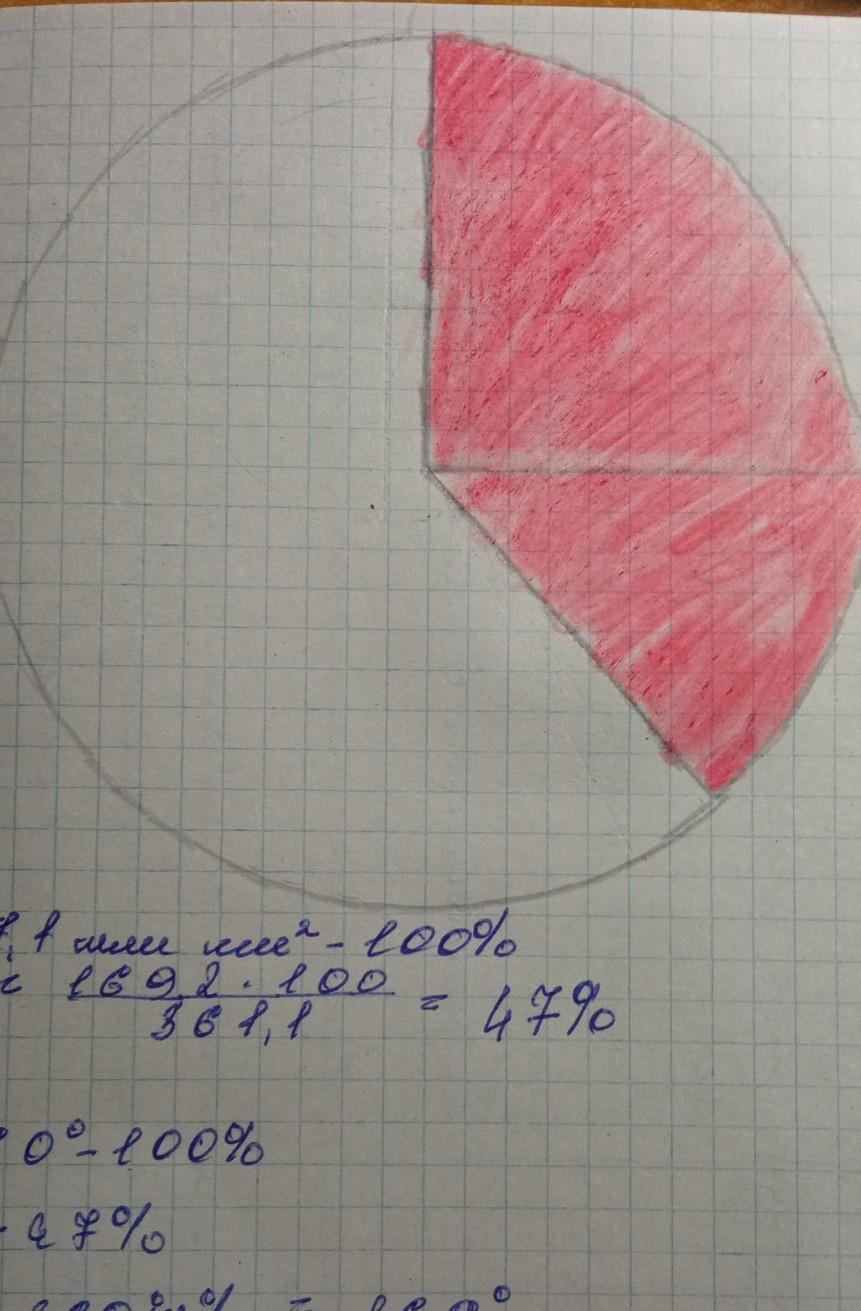 ,1 млн км² - 100%
1692 · 100
361,1
= 47%
0° - 100%
- 47%